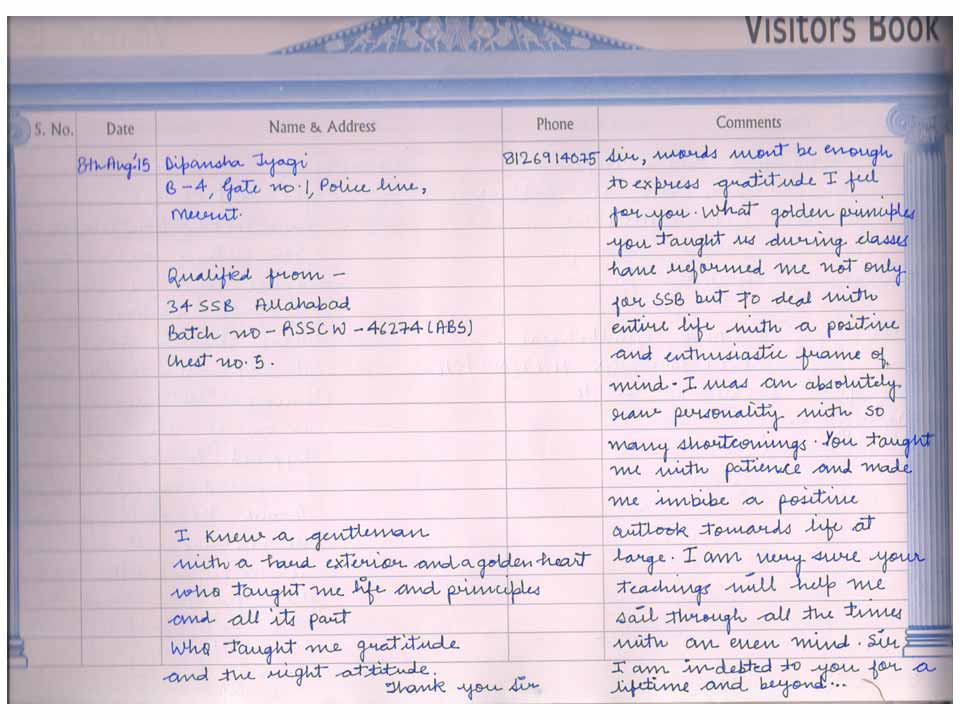 Visitors Book
S. No. Date Name & Address Phone Comments
8th Aug'15 Dipansha Tyagi 8126914075
B-4, Gate no.1, Police line,
Meerut.
Qualified from -
34 SSB Allahabad
Batch no - RSSCW - 46274 (ABS)
Chest no. 5.
I knew a gentleman
with a hard exterior and a golden heart
who taught me life and principles
and all its part
Who taught me gratitude
and the right attitude.
Thank you Sir
Sir, words wont be enough
to express gratitude I feel
for you. What golden principles
you taught us during classes
have reformed me not only
for SSB but to deal with
entire life with a positive
and enthusiastic frame of
mind. I was an absolutely
raw personality with so
many shortcomings. You taught
me with patience and made
me imbibe a positive
outlook towards life at
large. I am very sure your
teachings will help me
sail through all the times
with an even mind. Sir
I am indebted to you for a
lifetime and beyond...